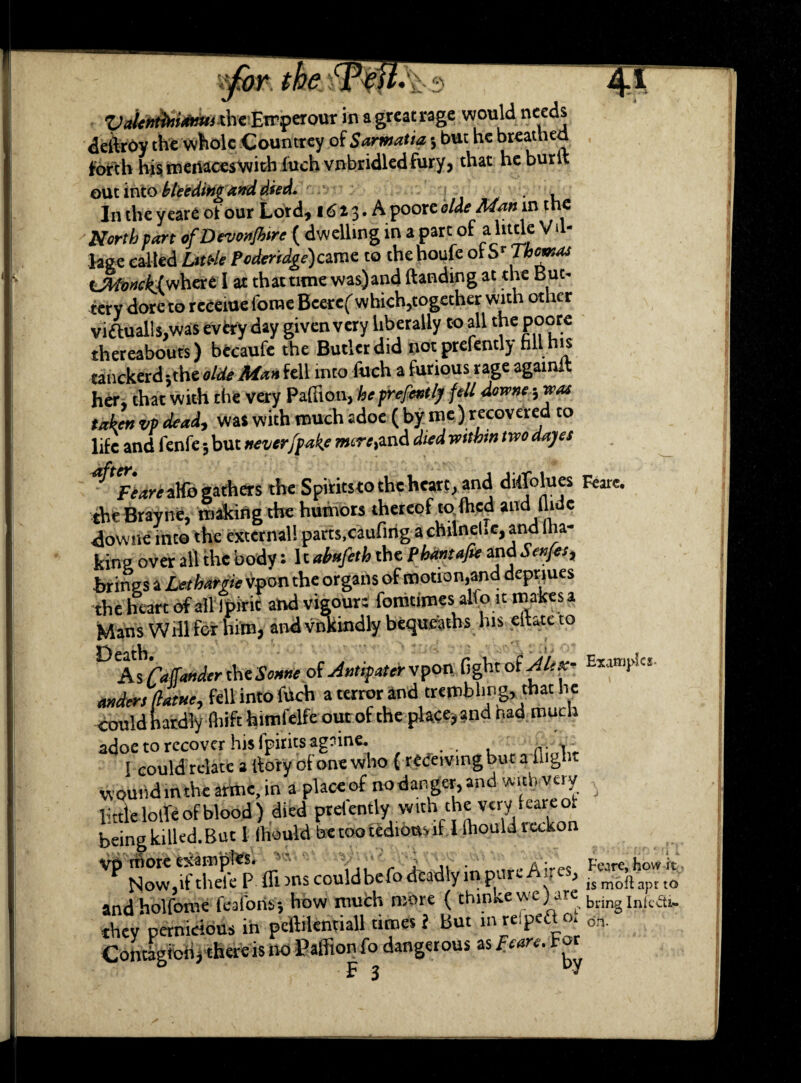 for the Pest. 41
Valentinianus the Emperour in a great rage would needs
destroy the whole Countrey of Sarmatia; but he breathed
forth his menaces with such vnbridled fury, that he burst
out into bleeding and died.
In the yeare of our Lord, 1623. A poore olde Man in the
North part of Devonshire (dwelling in a part of a little Vil-
lage called Little Poderidge) came to the house of Sr Thomas
Monck (where I at that time was) and standing at the But-
tery dore to receiue some Beere (which, together with other
victualls, was every day given very liberally to all the poore
thereabouts) because the Butler did not presently fill his
tanckerd; the olde Man fell into such a furious rage against
her, that with the very Passion, he presently fell downe; was
taken vp dead, was with much adoe (by me) recovered to
life and sense; but never spake more, and died within two dayes
after.
Feare also gathers the Spirits to the heart, and dissolues Feare.
the Brayne, making the humors thereof to shed and slide
downe into the externall parts, causing a chilnesse, and sha-
king over all the body: It abuseth the Phantasie and Senses,
brings a Lethargie vpon the organs of motion, and depriues
the heart of all spirit and vigour: somtimes also it makes a
Mans Will for him, and vnkindly bequeaths his estate to
Death.
As Cassander the Sonne of Antipater vpon sight of Alex- Examples.
anders statue, fell into such a terror and trembling, that he
could hardly shift himselfe out of the place, and had much
adoe to recover his spirits againe.
I could relate a story of one who (receiving but a slight
wound in the arme, in a place of no danger, and with very
little losse of blood) died presently with the very feare of
being killed. But I should be too tedious, if I should reckon
vp more examples.
Now, if these Passions could be so deadly in pure Aires, Feare, how it
and holsome seasons; how much more (thinke we) are is most apt to
they pernicious in pestilentiall times? But in respect of bring Infecti-
Contagion, there is no Passion so dangerous as Feare. For on.
F 3 by